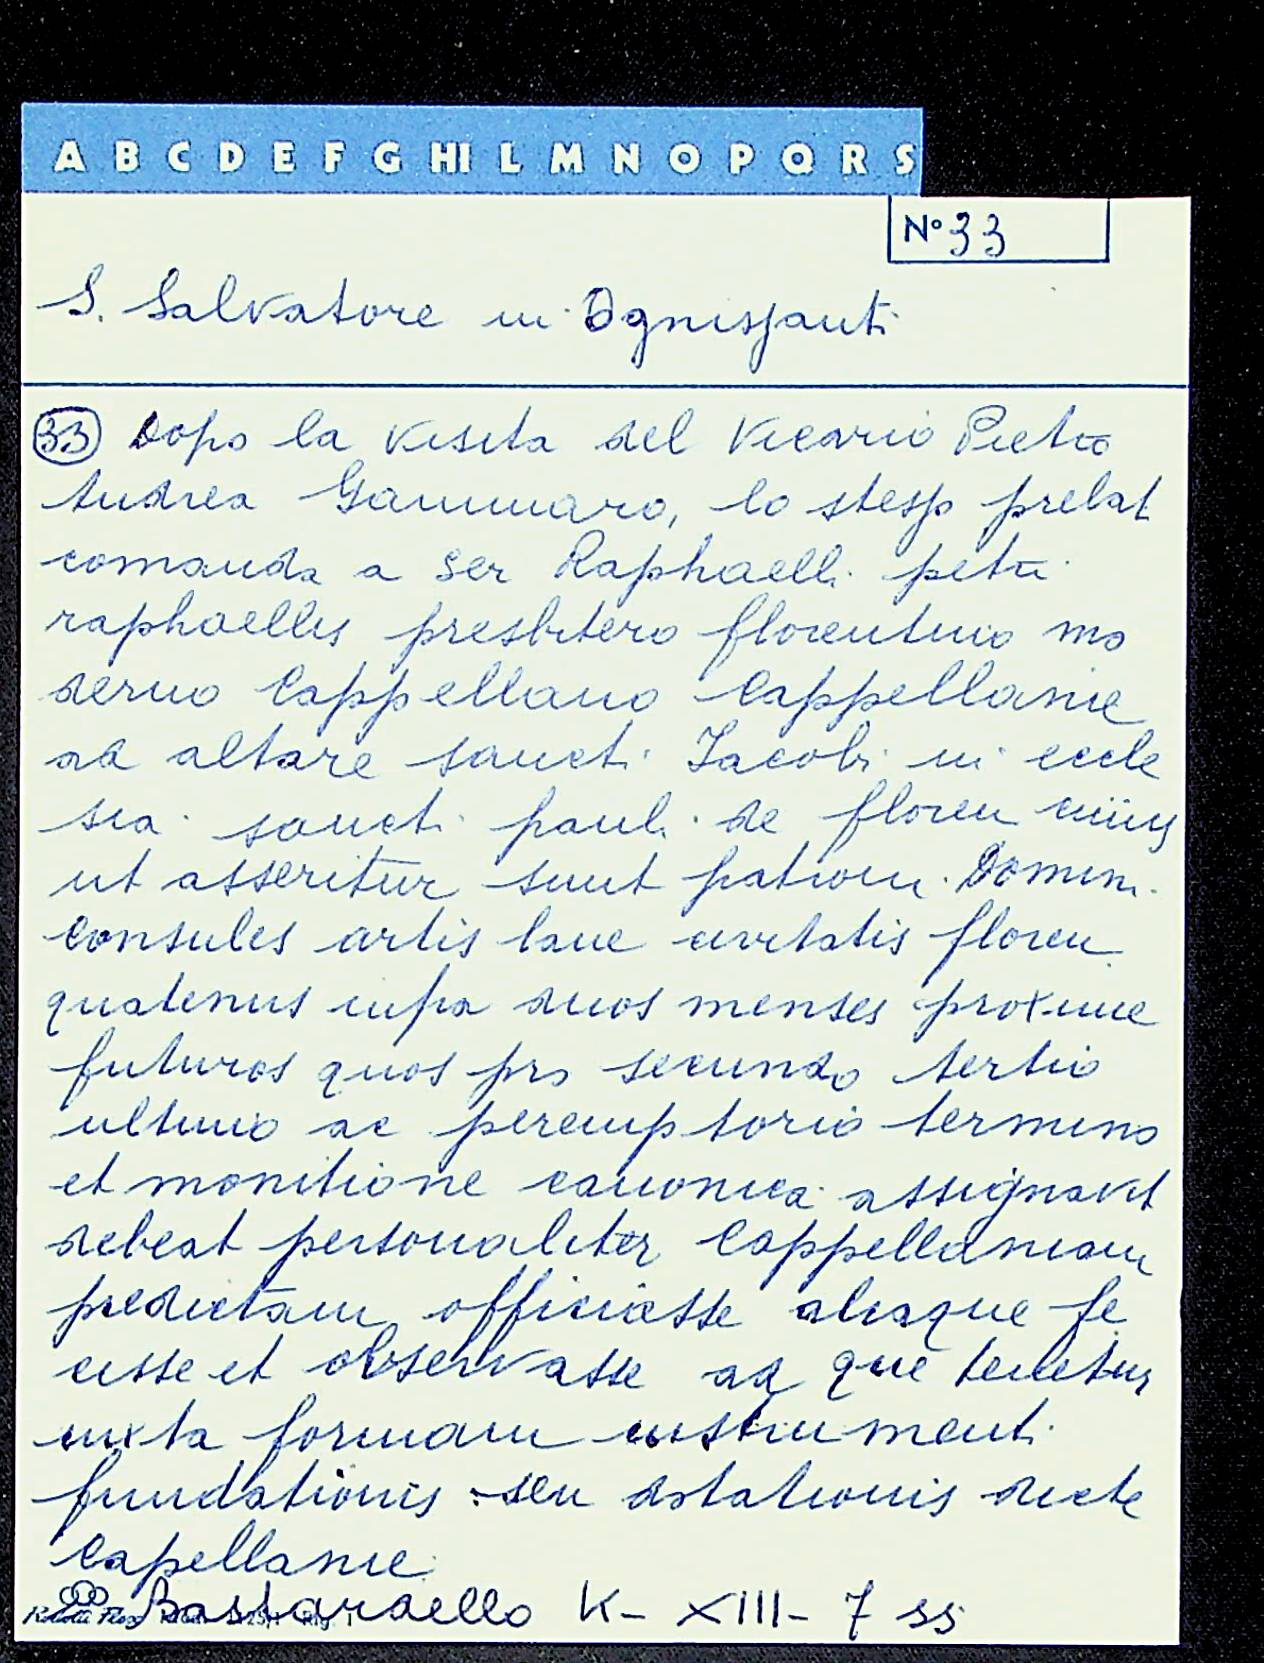 A B C D E F G HI L M N O P Q R S
N° 33
S. Salvatore in Ognissanti
33 Dopo la visita del Vicario Pietro
Andrea Gammaro, lo stesso prelat
comanda a ser Raphaelli petri
raphaellis presbitero florentino mo
derno Cappellano Cappellanie
ad altare sancti Iacobi in eccle
sia sancti pauli de floren cuius
ut asseritur sunt patroni Domini
consules artis lane civitatis floren
quatenus infra duos menses proxime
futuros quos pro secundo tertio
ultimo ac peremptorio termino
et monitione canonica assignavit
debeat personaliter Cappellaniam
predictam officiasse aliaque fe
cisse et observasse ad que tenetur
iuxta formam instrumenti
fundationis seu dotationis dicte
Capellanie
Bastardello K- XIII- 7 ss